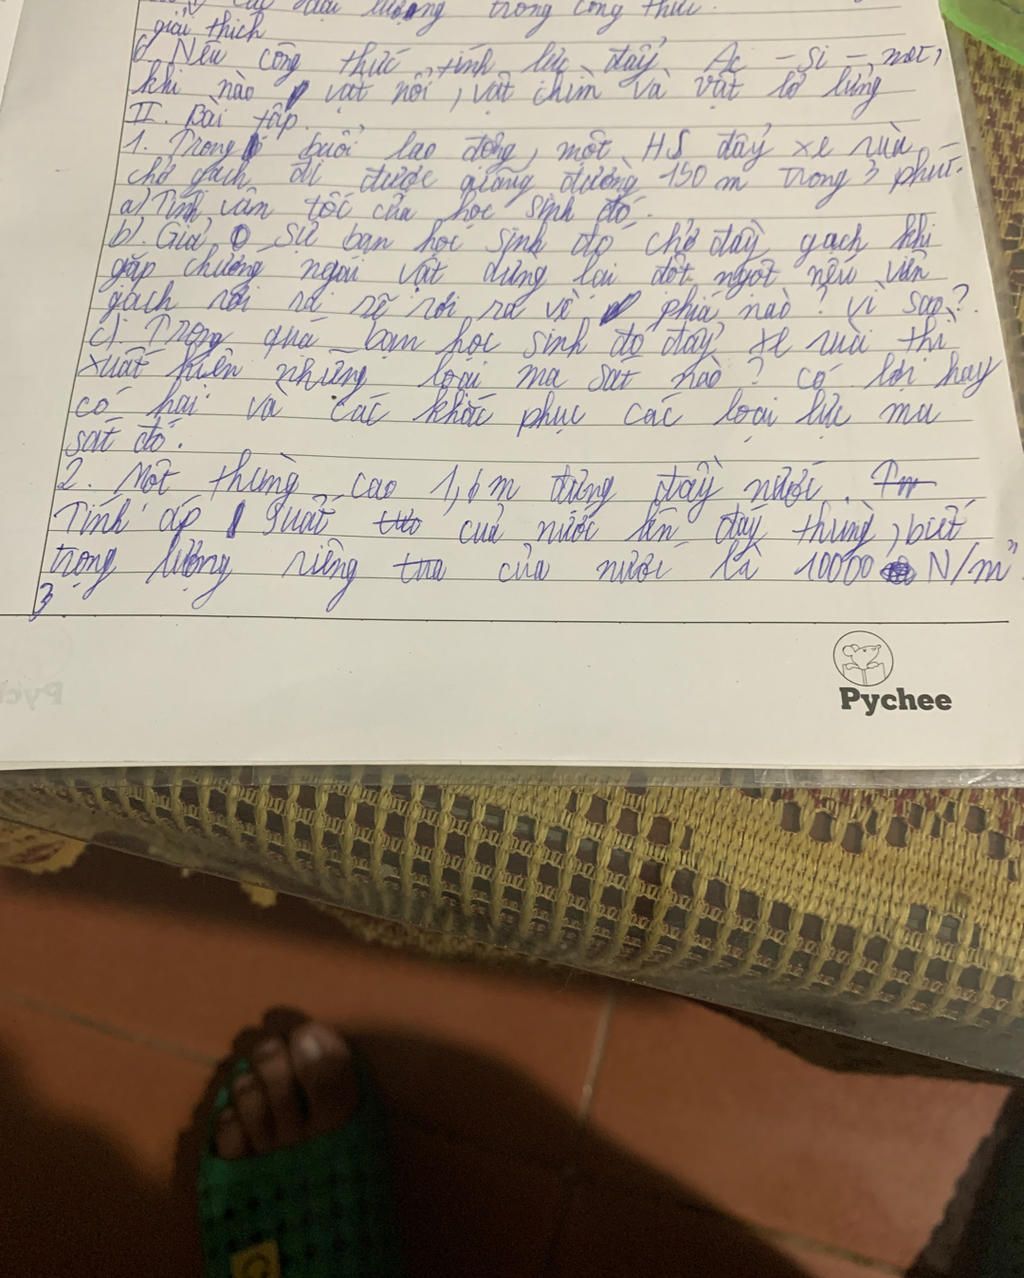 các đại lượng trong công thức.
giải thích
6. Nêu công thức tính lực đẩy Ác - Si - mét,
khi nào vật nổi, vật chìm và vật lơ lửng
II. Bài tập.
1. Trong buổi lao động, một HS đẩy xe rùa
chở gạch đi được quãng đường 150 m trong 3 phút.
a) Tính vân tốc của học sinh đó.
b). Giả sử bạn học sinh đó chở đầy gạch khi
gặp chướng ngại vật dừng lại đột ngột nếu viên
gạch rơi ra sẽ rơi ra về phía nào? Vì sao?
c). Trong quá bạn học sinh đó đẩy xe rùa thì
xuất hiện những loại ma sát nào? có lợi hay
có hại và các khắc phục các loại lực ma
sát đó.
2. Một thùng cao 1,6 m đựng đầy nước.
Tính áp suất của nước lên đáy thùng, biết
trọng lượng riêng của nước là 10000 N/m³.
3
Pychee